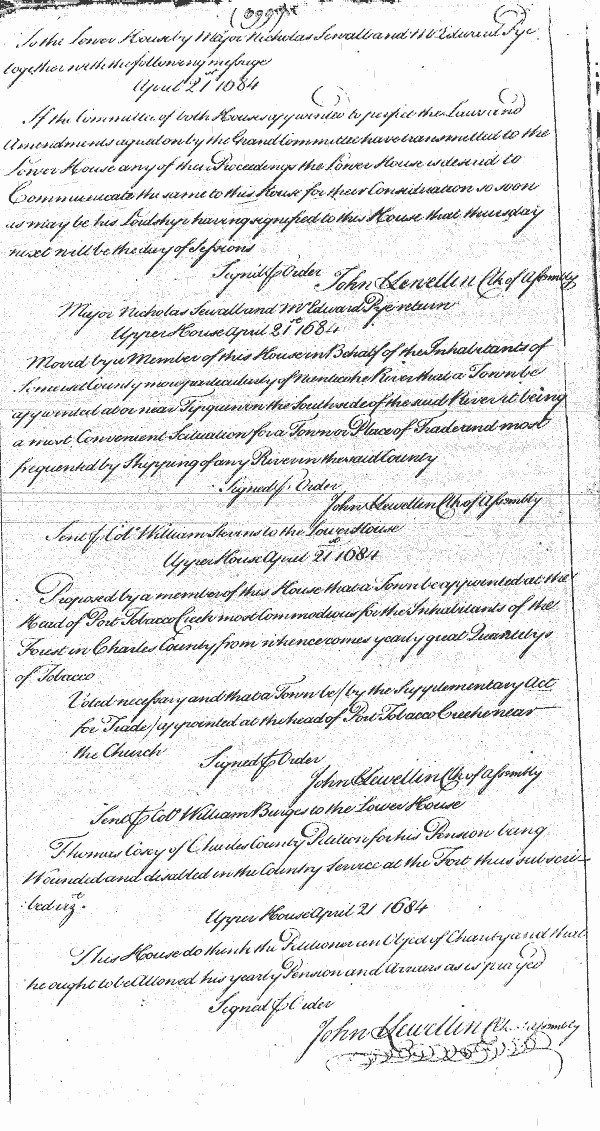 To the Lower House by Major Nicholas Sewall and Mr Edward Pye
together with the following message
April 21st 1684
If the Committee of both Houses appointed to perfect the Laws and
Amendments agreed on by the Grand Committee have transmitted to the
Lower House any of their Proceedings the Lower House is desired to
Communicate the same to this House for their Consideration so soon
as may be his Lordship having signified to this House that thursday
next will be the day of Sessions
Signed p Order John Llewellin Clk of Assembly
Major Nicholas Sewall and Mr Edward Pye return
Upper House April 21st 1684
Moved by a Member of this House in Behalf of the Inhabitants of
Somerset County more particularly of Nanticoke River that a Town be
appointed at or near on the South side of the said River it being
a most Convenient Scituation for a Town or Place of Trade and most
frequented by Shipping of any River in the said County
Signed p Order
John Llewellin Clk of Assembly
Sent p Colo William Stevens to the Lower House
Upper House April 21st 1684
Proposed by a member of this House that a Town be appointed at the
Head of Port Tobacco Creek most Commodious for the Inhabitants of the
Forest in Charles County from whence comes yearly great Quantitys
of Tobacco
Voted necessary and that a Town be / by the Supplementary Act
for Trade / appointed at the head of Port Tobacco Creeke near
the Church
Signed p Order
John Llewellin Clk of Assembly
Sent p Colo William Burges to the Lower House
Thomas of Charles County Petition for his Pension being
Wounded and disabled in the Country Service at the Fort thus subscri-
bed vizt.
Upper House April 21 1684
This House do think the Petitioner an Object of Charity and that
he ought to be Allowed his yearly Pension and Arrears as is prayed
Signed p Order
John Llewellin Clk of Assembly